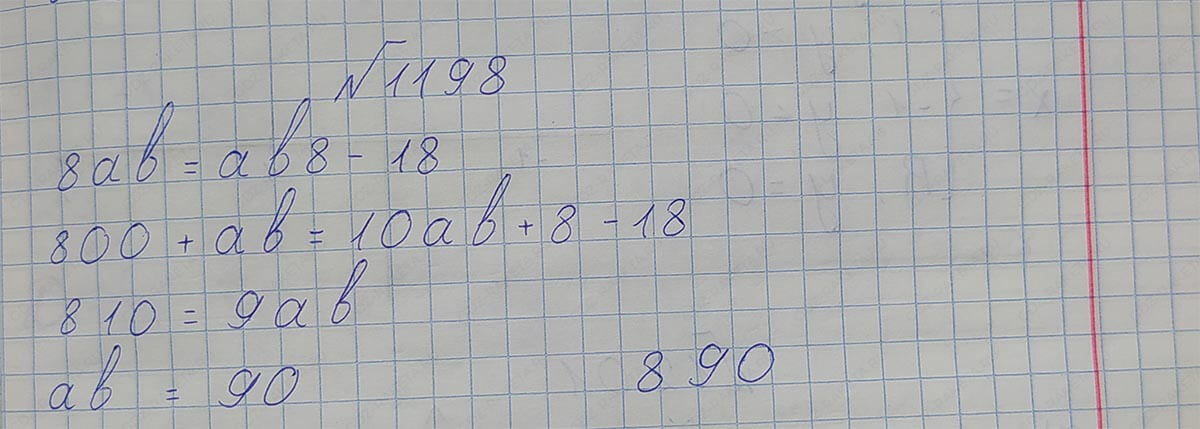 №1198
8ab = ab8 - 18
800 + ab = 10ab + 8 - 18
810 = 9ab
ab = 90
890